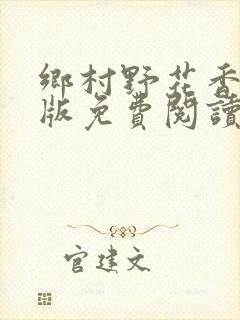 鄉村野花香
版免費閱讀
官建文